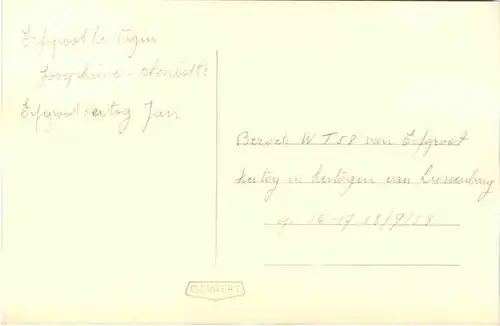 Erfgroot hertogin
Josephine-
Erfgroot hertog Jan
Bezoek W T 58 van Erfgroot
Hertog en Hertogin van Luxemburg
op 16-17 18/9/58
GEVAERT